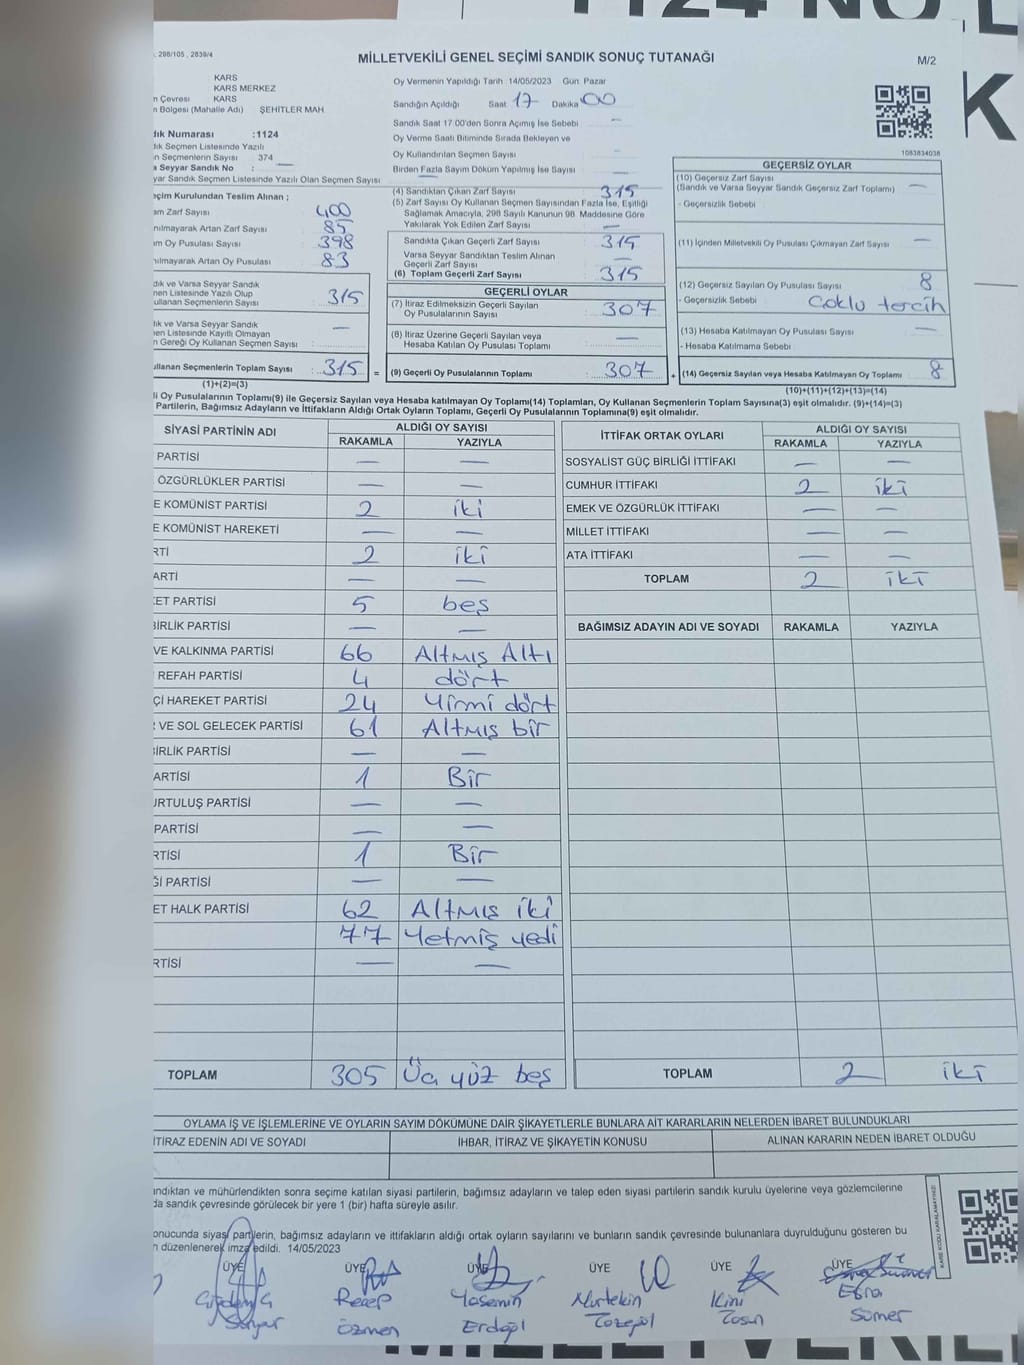 1124 NO'L
K
. 298/105 , 2839/4
MİLLETVEKİLİ GENEL SEÇİMİ SANDIK SONUÇ TUTANAĞI
M/2
KARS
KARS MERKEZ
n Çevresi KARS
n Bölgesi (Mahalle Adı) ŞEHİTLER MAH.
dık Numarası :1124
ık Seçmen Listesinde Yazılı
n Seçmenlerin Sayısı : 374
a Seyyar Sandık No : —
yar Sandık Seçmen Listesinde Yazılı Olan Seçmen Sayısı
Oy Vermenin Yapıldığı Tarih 14/05/2023 Gün Pazar
Sandığın Açıldığı Saat 17 Dakika 00
Sandık Saat 17.00'den Sonra Açımış İse Sebebi —
Oy Verme Saati Bitiminde Sırada Bekleyen ve
Oy Kullandırılan Seçmen Sayısı —
Birden Fazla Sayım Döküm Yapılmış İse Sayısı —
1083834038
eçim Kurulundan Teslim Alınan ;
am Zarf Sayısı 400
nılmayarak Artan Zarf Sayısı 85
am Oy Pusulası Sayısı 398
nılmayarak Artan Oy Pusulası 83
dık ve Varsa Seyyar Sandık
men Listesinde Yazılı Olup
ullanan Seçmenlerin Sayısı 315
ık ve Varsa Seyyar Sandık
en Listesinde Kayıtlı Olmayan
n Gereği Oy Kullanan Seçmen Sayısı —
ullanan Seçmenlerin Toplam Sayısı : 315
(1)+(2)=(3)
(4) Sandıktan Çıkan Zarf Sayısı 315
(5) Zarf Sayısı Oy Kullanan Seçmen Sayısından Fazla İse, Eşitliği
Sağlamak Amacıyla, 298 Sayılı Kanunun 98. Maddesine Göre
Yakılarak Yok Edilen Zarf Sayısı —
Sandıkta Çıkan Geçerli Zarf Sayısı 315
Varsa Seyyar Sandıktan Teslim Alınan
Geçerli Zarf Sayısı —
(6) Toplam Geçerli Zarf Sayısı 315
GEÇERLİ OYLAR
(7) İtiraz Edilmeksizin Geçerli Sayılan
Oy Pusulalarının Sayısı 307
(8) İtiraz Üzerine Geçerli Sayılan veya
Hesaba Katılan Oy Pusulası Toplamı —
= (9) Geçerli Oy Pusulalarının Toplamı : 307
GEÇERSİZ OYLAR
(10) Geçersiz Zarf Sayısı
(Sandık ve Varsa Seyyar Sandık Geçersiz Zarf Toplamı) —
- Geçersizlik Sebebi :
(11) İçinden Milletvekili Oy Pusulası Çıkmayan Zarf Sayısı —
(12) Geçersiz Sayılan Oy Pusulası Sayısı 8
- Geçersizlik Sebebi : Çoklu tercih
(13) Hesaba Katılmayan Oy Pusulası Sayısı —
- Hesaba Katılmama Sebebi :
+ (14) Geçersiz Sayılan veya Hesaba Katılmayan Oy Toplamı 8
(10)+(11)+(12)+(13)=(14)
li Oy Pusulasının Toplamı(9) ile Geçersiz Sayılan veya Hesaba katılmayan Oy Toplamı(14) Toplamları, Oy Kullanan Seçmenlerin Toplam Sayısına(3) eşit olmalıdır. (9)+(14)=(3)
Partilerin, Bağımsız Adayların ve İttifakların Aldığı Ortak Oyların Toplamı, Geçerli Oy Pusulalarının Toplamına(9) eşit olmalıdır.
SİYASİ PARTİNİN ADI ALDIĞI OY SAYISI
RAKAMLA YAZIYLA
PARTİSİ — —
ÖZGÜRLÜKLER PARTİSİ — —
E KOMÜNİST PARTİSİ 2 iki
E KOMÜNİST HAREKETİ — —
RTİ 2 iki
ARTİ — —
ET PARTİSİ 5 beş
BİRLİK PARTİSİ — —
VE KALKINMA PARTİSİ 66 Altmış Altı
REFAH PARTİSİ 4 dört
Çİ HAREKET PARTİSİ 24 Yirmi dört
VE SOL GELECEK PARTİSİ 61 Altmış bir
BİRLİK PARTİSİ — —
ARTİSİ 1 Bir
URTULUŞ PARTİSİ — —
PARTİSİ — —
RTİSİ 1 Bir
Ğİ PARTİSİ — —
ET HALK PARTİSİ 62 Altmış iki
77 Yetmiş yedi
RTİSİ — —
TOPLAM 305 Üç yüz beş
İTTİFAK ORTAK OYLARI ALDIĞI OY SAYISI
RAKAMLA YAZIYLA
SOSYALİST GÜÇ BİRLİĞİ İTTİFAKI — —
CUMHUR İTTİFAKI 2 iki
EMEK VE ÖZGÜRLÜK İTTİFAKI — —
MİLLET İTTİFAKI — —
ATA İTTİFAKI — —
TOPLAM 2 iki
BAĞIMSIZ ADAYIN ADI VE SOYADI RAKAMLA YAZIYLA
TOPLAM 2 iki
OYLAMA İŞ VE İŞLEMLERİNE VE OYLARIN SAYIM DÖKÜMÜNE DAİR ŞİKAYETLERLE BUNLARA AİT KARARLARIN NELERDEN İBARET BULUNDUKLARI
İTİRAZ EDENİN ADI VE SOYADI İHBAR, İTİRAZ VE ŞİKAYETİN KONUSU ALINAN KARARIN NEDEN İBARET OLDUĞU
ndıktan ve mühürlendikten sonra seçime katılan siyasi partilerin, bağımsız adayların ve talep eden siyasi partilerin sandık kurulu üyelerine veya gözlemcilerine
da sandık çevresinde görülecek bir yere 1 (bir) hafta süreyle asılır.
onucunda siyasi partilerin, bağımsız adayların ve ittifakların aldığı ortak oyların sayılarını ve bunların sandık çevresinde bulunanlara duyrulduğunu gösteren bu
n düzenlenerek imza edildi. 14/05/2023
KARE KODU KARALAMAYINIZ!
ÜYE ÜYE ÜYE ÜYE ÜYE ÜYE
Recep Yasemin Nurtekin Esra
Özmen Tosun Sümer
MİLLETVEKİLİ